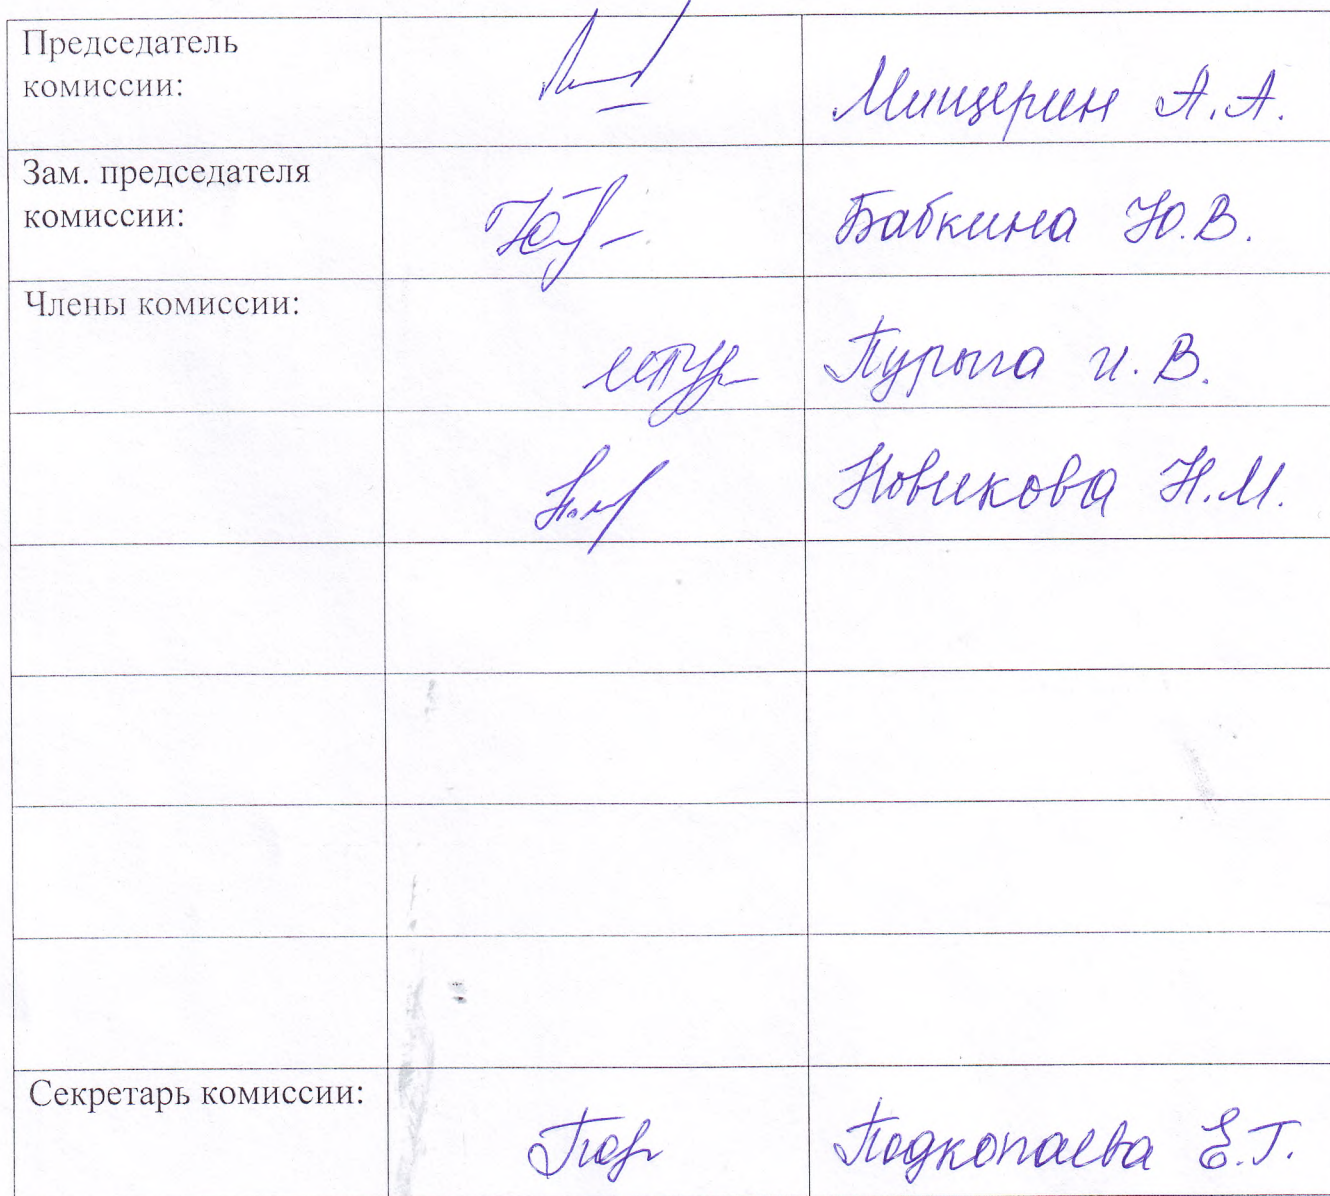 Председатель
комиссии:
Мищерин А.А.
Зам. председателя
комиссии:
Бабкина Ю.В.
Члены комиссии:
Пурыга И.В.
Новикова Н.М.
Секретарь комиссии:
Подкопаева Е.Г.